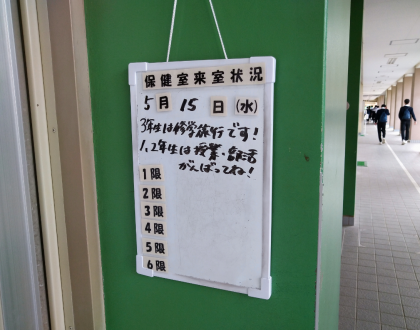 保健室来室状況
5月 15日(水)
3年生は修学旅行です!
1,2年生は授業・部活
がんばってね!
1限
2限
3限
4限
5限
6限